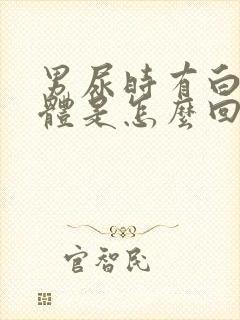 男尿時有白
體是怎麼回
官智民